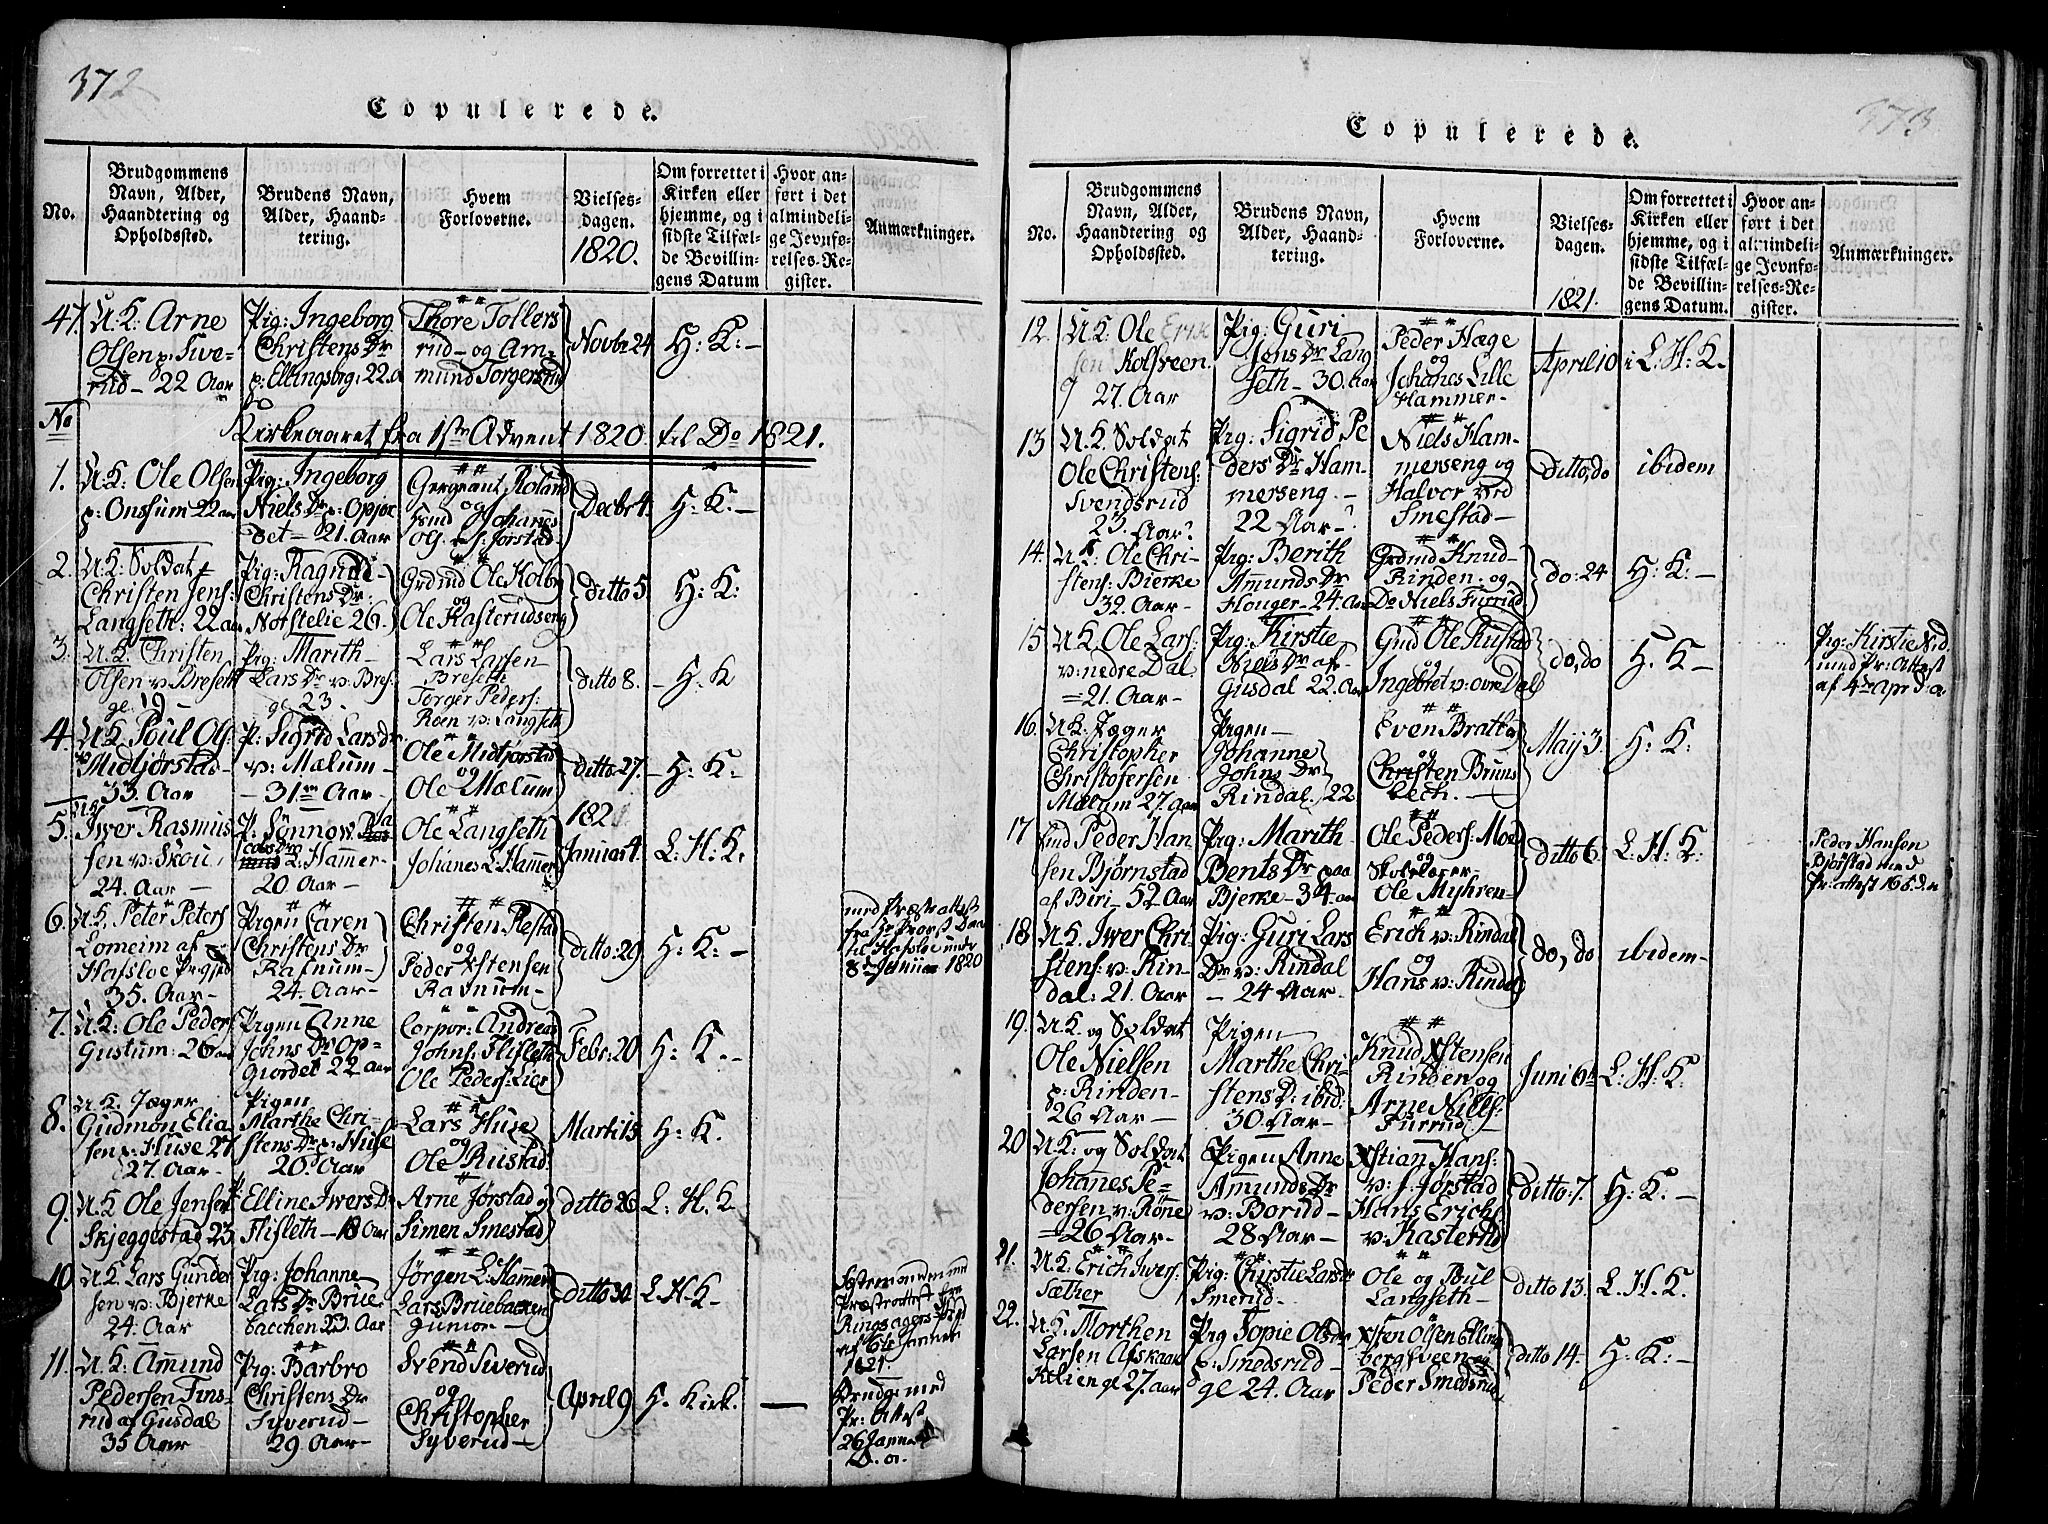 372
Copulerede.
No.
Brudgommens
Navn, Alder,
Haandtering og
Opholdssted.
Brudens Navn,
Alder, Haand-
tering.
Hvem
Forloverne.
Vielses-
dagen.
1820.
Om forrettet i
Kirken eller
hjemme, og i
sidste Tilfæl-
de Bevillin-
gens Datum
Hvor an-
ført i det
almindeli-
ge Jevnfø-
relses-Re-
gister.
Anmærkninger.
47.
U: K: Arne
Olsen p: Swe-
rud - 22 Aar
Pig: Ingeborg
Christens Dr
p: Ellingsberg: 22. a
Thore Tollers
rud - og Am-
mund Torgersrud
Novbr 24
H: K: -
No
Kirkeaaret fra 1ste Advent 1820 til Do 1821.
1.
U: K: Ole Olsen
p: Onsum 22 aar
Pig: Ingeborg
Niels Dr p: Opjor
det - 21. Aar
Sergeant Roland
og Johannes
f: Jørstad
Decbr 4.
H: K: -
2.
U: K: Soldat
Christen Jens:
Langseth: 22 aar
Pig: Ragnild
Christens Dr:
Nordstelie 26.
Grdmd Ole Kolby
og
Ole Kasterudseng
ditto 5.
H: K:
3.
U. K. Christen
Olsen v: Breseth
ge. 19
Pig: Marith
Lars Dr v: Bres:
ge 23.
Lars Larsen
Breseth
Torger Peders:
Roen v: Langseth
ditto 8.
- H: K
4.
U K Poul Ols
Midtjørstad
33. Aar
P: Sigrid Lars dr
v: Mælum -
- 31 Aar -
Ole Midtjørstad
og
Ole Mælum
ditto 27.
- H: K:
5.
U K
Iwer Rasmus
sen v: Skou
24. Aar -
P: Sønnow
L: Hamer
20 Aar -
Ole Langseth
Johanes L: Hamer
182
Januar 4.
L: H: K:
6.
U K. Peter Peters
Lomeim af
Hafsloe Pr:gjed
35. Aar -
Pigen Caren
Christens Dr
Rafnum -
24. Aar -
Christen Restad
og
Peder Xstensen
Rafnum -
ditto 29
H: K: -
med Præstattest
fra Hr Provst Daa
til Hafsloe under
8de Januar 1820
7.
U: K: Ole Peders:
Gustum: 26 aar
Pigen Anne
Johns Dr Op-
giordet 22 aar
Corpor: Andreas
Johns: Flisleth
Ole Peders: Lier
Febr: 20
H: K. -
8.
U. K. Jæger
Gudmon Elia
sen p: Huse 27
27. Aar -
Pigen
Marthe Chri-
stens Dr p: Huse
20. Aar
Lars Huse
og
Ole Rustad
Marti 15
H: K.
9.
U K Ole Jensen
Skjeggestad 23.
P Elline Iwers Dr
Flisleth - 18 Aar
Arne Jørstad og
Simen Smestad
ditto 26
L: H. K
10.
U K Lars Gunder
sen v: Bjerke
24. Aar
Pig: Johanne
Lars Dr Brue
bacchen 23. Aar
Jørgen L: Hamer
Lars Bruebacken
Junior -
ditto 30
L: H. K -
med
Præstattest fra
Ringsagers Præst
af 6te Januar
1821.
11.
U K: Amund
Pedersen Fins
rud af Gusdal
35 Aar
Pig: Barbro
Christens Dr
Syverud -
29 Aar -
Svend Siverud
og
Christopher
Syverud -
April 9
H. Kirk.
Brudg: med
Pr: Attest
26 Janua
d. a.
373
Copulerede.
No.
Brudgommens
Navn, Alder,
Haandtering og
Opholdssted.
Brudens Navn,
Alder, Haand-
tering.
Hvem
Forloverne.
Vielses-
dagen.
1821.
Om forrettet i
Kirken eller
hjemme, og i
sidste Tilfæl-
de Bevillin-
gens Datum.
Hvor an-
ført i det
almindeli-
ge Jevnfø-
relses-Re-
gister.
Anmærkninger.
12.
U K. Ole Erik
sen Kolsveen
27. Aar
Pig: Guri
Jens Dr Lang
seth - 30. aar
Peder Hage
og
Johanes Lille
Hammer -
April 10
i L. H. K.
13
U. K Soldat
Ole Christens:
Svendsrud
23. Aar
Pig: Sigrid Pe
ders Dr Ham-
merseng -
22 Aar -
Niels Ham-
merseng og
Halvor ved
Smestad -
Ditto, do
ibidem
14.
U K: Ole Chri-
stens: Bierke
32. Aar -
Pig: Berith
Amunds Dr
Flouger - 24. Aar
Grdmd Knud
Rinden. og
Do Niels Furrud
do: 24
H: K: -
15.
U K. Ole Lars:
v: nedre Dal
= 21. Aar -
Pig: Kirstie
Niels Dr af
Gusdal 22. Aar
Gmd Ole Rustad
og
Ingebret v: øvre Dal
do, do
H: K -
Pig: Kirstie Nd
med Pr: Attest
af 4de Apr d. a
16.
U K. Jæger
Christopher
Christofersen
Mælum 27. aar
Pigen
Johanne
Johns Dr
Rindal. 22
Even Bratly
og
Christen Bruns
bech. -
May 3.
H: K:
17
Peder Han
sen Bjørnstad
af Biri - 52 Aar
Pig: Marith
Bents Dr paa
Bjerke - 34. aar
Ole Peders: Moe
og
Skolelærer
Ole Myhren
ditto 6.
L: H. K:
Peder Hansen
Bjørstad med
Pr: attest 16
18
U. K. Iwer Chri-
stens: v: Rin-
dal: 21. Aar
Pig: Guri Lars
Dr v: Rindal
- 24 Aar -
Erich v: Rindal
og
Hans v: Rindal
do, do
ibidem -
19.
U. K. og Soldat
Ole Nielsen
p: Rinden -
26 Aar -
Pigen
Marthe Chri-
stens D: ibid:
30. Aar -
Knud Xstensen
Rinden og
Arne Niels:
Furrud.
Juni 6te
L: H. K:
20
U K: og Soldat
Johannes Pe-
dersen v: Røne
= 26 Aar. -
Pigen Anne
Amunds Dr
v: Borud -
28 Aar -
Xstian Hans:
v: f: Jørstad
Hans Erichs
v: Kasterud
Ditto: 7.
H: K: -
21.
U. K. Erich Iwers:
Sæther
Pig: Chirstie Lars dr
Smerud -
Ole og Poul
Langseth -
ditto 13.
L. H. K.
22.
U. K. Morthen
Larsen Afskaar
27. aar
Pig Sophie Olsdr
p: Smedsrud -
ge 24. Aar
Xsten Olsen Elling
bergsveen og
Peder Smedsrud
ditto 14.
H: K: -